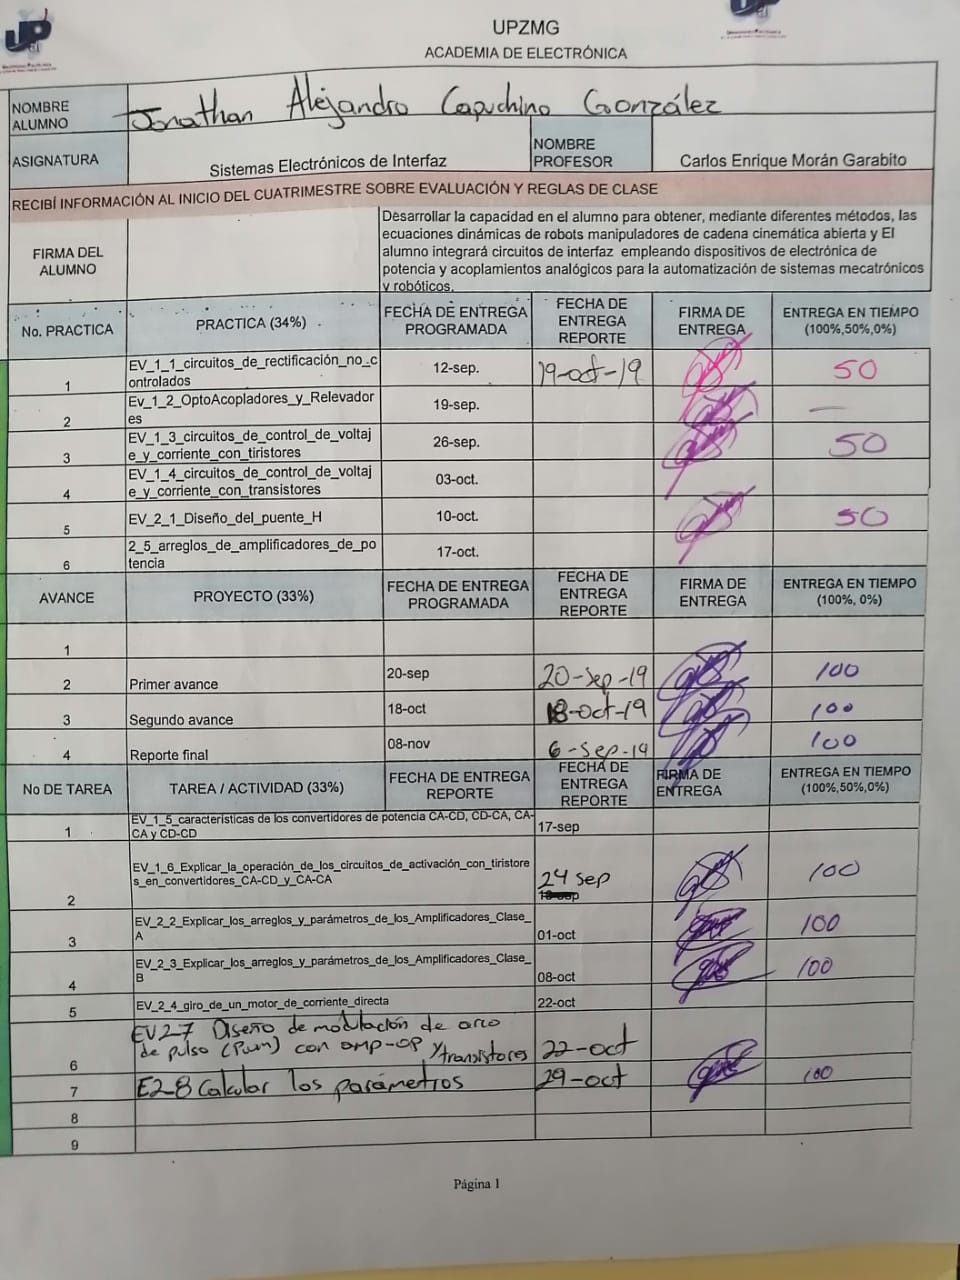 UPZMG
ACADEMIA DE ELECTRÓNICA
NOMBRE ALUMNO Jonathan Alejandro Capuchino González
ASIGNATURA Sistemas Electrónicos de Interfaz NOMBRE PROFESOR Carlos Enrique Morán Garabito
RECIBÍ INFORMACIÓN AL INICIO DEL CUATRIMESTRE SOBRE EVALUACIÓN Y REGLAS DE CLASE
FIRMA DEL ALUMNO
Desarrollar la capacidad en el alumno para obtener, mediante diferentes métodos, las
ecuaciones dinámicas de robots manipuladores de cadena cinemática abierta y El
alumno integrará circuitos de interfaz empleando dispositivos de electrónica de
potencia y acoplamientos analógicos para la automatización de sistemas mecatrónicos
y robóticos.
No. PRACTICA PRACTICA (34%) FECHA DE ENTREGA PROGRAMADA FECHA DE ENTREGA REPORTE FIRMA DE ENTREGA ENTREGA EN TIEMPO (100%,50%,0%)
1 EV_1_1_circuitos_de_rectificación_no_controlados 12-sep. 19-oct-19 50
2 Ev_1_2_OptoAcopladores_y_Relevadores 19-sep. —
3 EV_1_3_circuitos_de_control_de_voltaje_y_corriente_con_tiristores 26-sep. 50
4 EV_1_4_circuitos_de_control_de_voltaje_y_corriente_con_transistores 03-oct.
5 EV_2_1_Diseño_del_puente_H 10-oct. 50
6 2_5_arreglos_de_amplificadores_de_potencia 17-oct.
AVANCE PROYECTO (33%) FECHA DE ENTREGA PROGRAMADA FECHA DE ENTREGA REPORTE FIRMA DE ENTREGA ENTREGA EN TIEMPO (100%, 0%)
1
2 Primer avance 20-sep 20-Sep-19 100
3 Segundo avance 18-oct 18-oct-19 100
4 Reporte final 08-nov 6-Sep-19 100
No DE TAREA TAREA / ACTIVIDAD (33%) FECHA DE ENTREGA REPORTE FECHA DE ENTREGA REPORTE FIRMA DE ENTREGA ENTREGA EN TIEMPO (100%,50%,0%)
1 EV_1_5_características de los convertidores de potencia CA-CD, CD-CA, CA-CA y CD-CD 17-sep
2 EV_1_6_Explicar_la_operación_de_los_circuitos_de_activación_con_tiristores_en_convertidores_CA-CD_y_CA-CA 24 sep 100
3 EV_2_2_Explicar_los_arreglos_y_parámetros_de_los_Amplificadores_Clase_A 01-oct 100
4 EV_2_3_Explicar_los_arreglos_y_parámetros_de_los_Amplificadores_Clase_B 08-oct 100
5 EV_2_4_giro_de_un_motor_de_corriente_directa 22-oct
6 EV2-7 Diseño de modulación de arco de pulso (Pwm) con omp-op y transistores 22-oct
7 E2-8 Calcular los parámetros 29-oct 100
8
9
Página 1